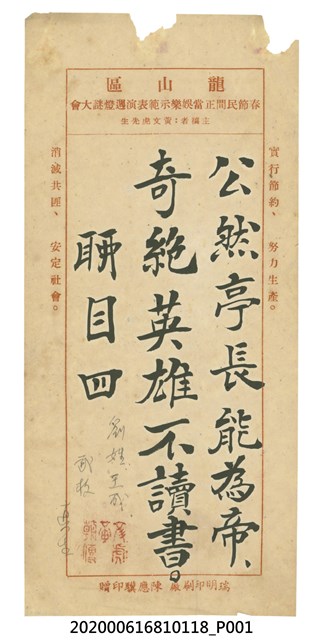 龍山區
春節民間正當娛樂示範表演週燈謎大會
主編者：黃文虎先生
實行節約、努力生產。
公然亭長能為帝、
奇絶英雄不讀書。
聊目四
劉姓王或
消滅共匪、安定社會。
瑞明印刷廠 陳應騏印贈
202000616810118_P001